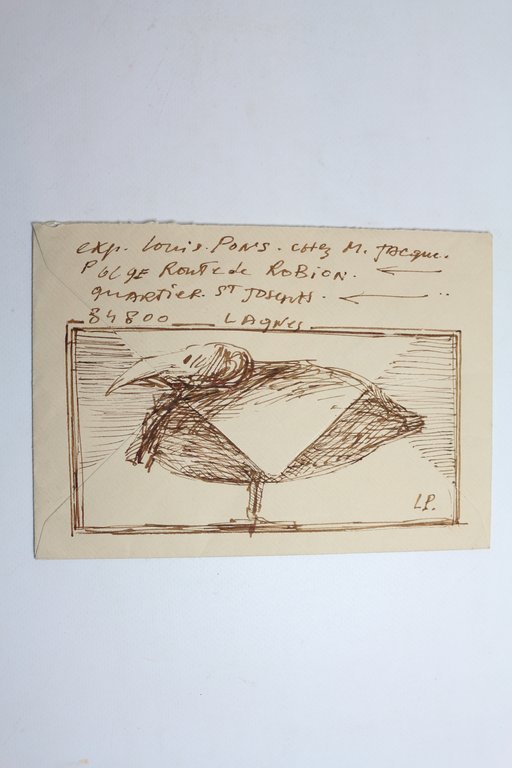 exp. Louis. PONS. chez M. JAcque.
POLGE Route de RoBion.
quARTier. ST JosepH.
84800 LAgnes
LP.